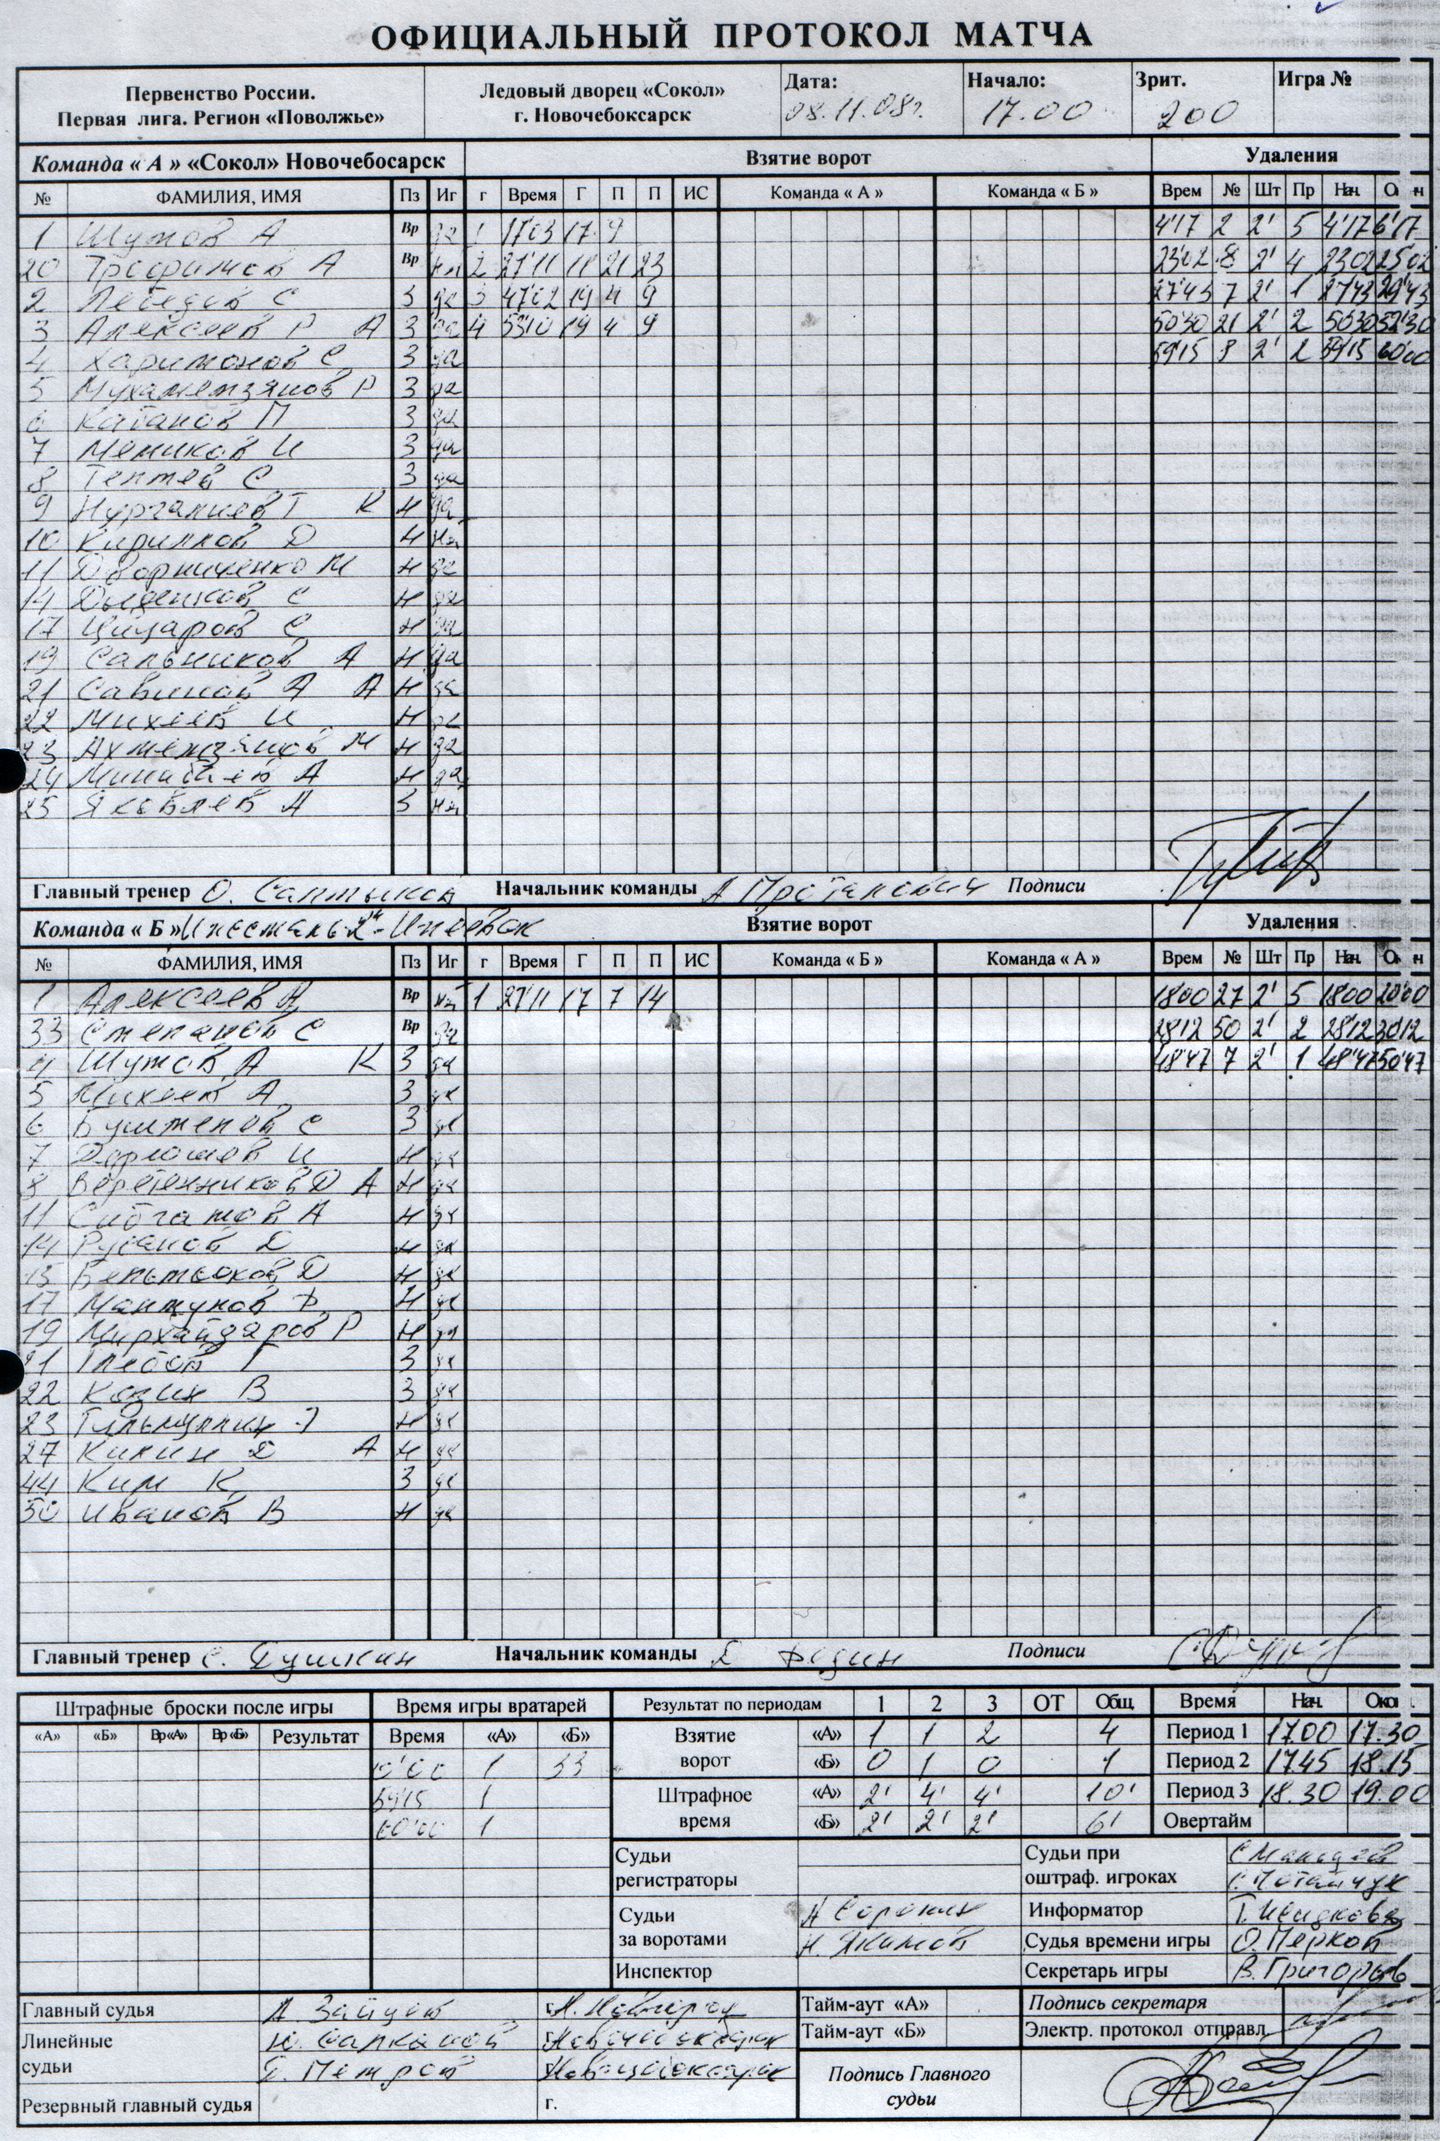 ОФИЦИАЛЬНЫЙ ПРОТОКОЛ МАТЧА
Первенство России. Первая лига. Регион «Поволжье»
Ледовый дворец «Сокол» г. Новочебоксарск
Дата: 08.11.08г.
Начало: 17.00
Зрит. 200
Игра №
Команда « А » «Сокол» Новочебосарск Взятие ворот Удаления
№ ФАМИЛИЯ, ИМЯ Пз Иг г Время Г П П ИС Команда « А » Команда « Б » Врем № Шт Пр Нач. Ок-н
1 Шутов А Вр да 1 17'03 17 9 4'17 2 2' 5 4'17 6'17
20 Трофимов А Вр 2 27'11 11 21 23 23'02 8 2' 4 23'02 25'02
2 Лебедев С З да 3 47'02 19 4 9 27'43 7 2' 1 27'43 29'43
3 Алексеев Р А З да 4 53'10 19 4 9 50'30 21 2' 2 50'30 52'30
4 Харитонов С З да 59'15 8 2' 2 59'15 60'00
5 Мухаметзянов Р З да
6 Катанов П З да
7 Мешков И З да
8 Теплев С З да
9 Нургалиев Т К Н да
10 Кириллов Д Н
11 Дворниченко М Н да
14 С Н да
17 Цицаров С Н да
19 Сальников А Н да
21 Савинов А А Н да
22 Михеев И Н да
23 Ахметзянов М Н да
24 Минибаев А Н да
25 Яковлев А З
Главный тренер О. Салтыков Начальник команды А. Протапович Подписи
Команда « Б » Взятие ворот Удаления
№ ФАМИЛИЯ, ИМЯ Пз Иг г Время Г П П ИС Команда « Б » Команда « А » Врем № Шт Пр Нач. Ок-н
1 Алексеев А Вр 1 27'11 17 7 14 18'00 27 2' 5 18'00 20'00
33 Степанов С Вр да 28'12 50 2' 2 28'12 30'12
4 Шутов А К З да 48'47 7 2' 1 48'47 50'47
5 Михеев А З да
6 С З да
7 Дорошев И Н да
8 Веретенников Д А Н да
11 Сибгатов А Н да
14 Русанов Д Н да
15 Бельтюков Д Н да
17 Мантунов Н да
19 Мирхайдаров Р Н да
21 Глебов Г З да
22 Козин В З да
23 Гильмуллин Н да
27 Килин Д А Н да
44 Ким К З да
50 Иванов В Н да
Главный тренер С. Душкин Начальник команды Д Федин Подписи
Штрафные броски после игры Время игры вратарей Результат по периодам 1 2 3 ОТ Общ. Время Нач. Окон.
«А» «Б» Вр«А» Вр«Б» Результат Время «А» «Б»
Взятие ворот «А» 1 1 2 4 Период 1 17.00 17.30
00'00 1 33 «Б» 0 1 0 1 Период 2 17.45 18.15
59'15 1 Штрафное время «А» 2' 4' 4' 10' Период 3 18.30 19.00
60'00 1 «Б» 2' 2' 2' 6' Овертайм
Судьи регистраторы
Судьи при оштраф. игроках С. Потапчук
Судьи за воротами А Сорокин Н. Якимов
Информатор Т.
Судья времени игры О. Перков
Инспектор
Секретарь игры В. Григорьев
Главный судья А. Зайцев г. Н. Новгород
Тайм-аут «А» Подпись секретаря
Линейные судьи Ю. г. Новочебоксарск
Тайм-аут «Б» Электр. протокол отправл
Петров г. Новочебоксарск
Подпись Главного судьи
Резервный главный судья г.